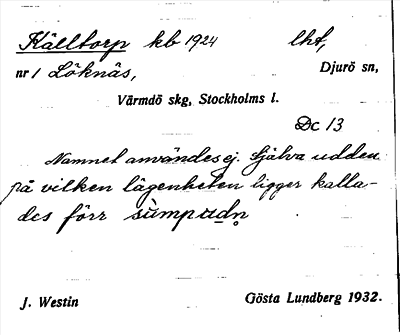 Källtorp kb 1924 lht,
nr 1 Löknäs, Djurö sn,
Värmdö skg, Stockholms l.
Dc 13
Namnet användes ej. Själva udden
på vilken lägenheten ligger kalla-
des förr sùmpudn̥
J. Westin Gösta Lundberg 1932.